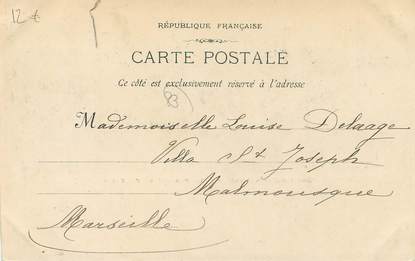 12 €
RÉPUBLIQUE FRANÇAISE
CARTE POSTALE
Ce côté est exclusivement réservé à l'adresse
83
Mademoiselle Louise Delaage
Villa St Joseph
Malmousque
Marseille